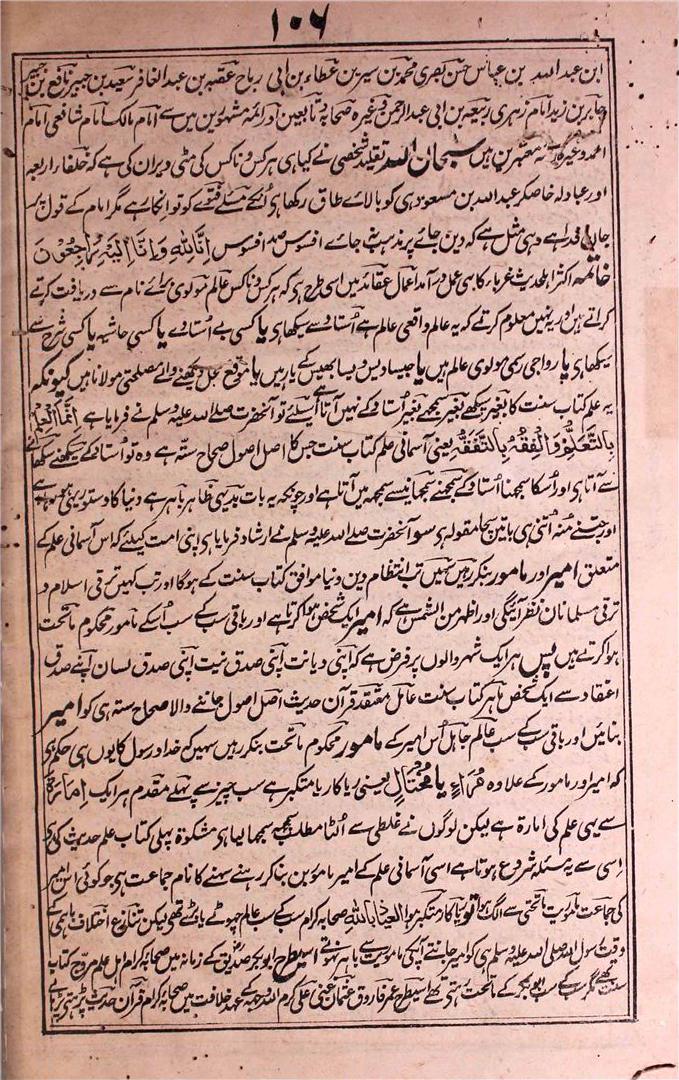 ۱۰۶
ابن عبد اللہ بن عباس حسن بصری محمد بن سیرین عطاء بن ابی رباح عقبہ بن عبد الغافر سعید بن جبیر نافع بن جبیر
جابر بن زید امام زہری ربیعہ بن ابی عبد الرحمن وغیرہ صحابہ و تابعین اور ائمہ مشہورین میں سے امام مالک امام شافعی امام
احمد وغیرہ ہیں سبحان اللہ تقلید شخصی نے کیا ہی ہر کس و ناکس کی مٹی ویران کی ہے کہ خلفاء اربعہ
اور عبادلہ خاصکر عبد اللہ بن مسعود ہی کو بالائے طاق رکھا ہی انکے مسئلے فتوے کو تو انکار ہے مگر امام کے قول پر
جان فدا ہے وہی مثل ہے کہ دین جائے پر مذہب نہ جائے افسوس صد افسوس اِنَّا لِلّٰہِ وَاِنَّا اِلَیْہِ رَاجِعُوْنَ
خاتمہ اکثر اہلحدیث غرباء کا بھی عمل درآمد اعمال عقائد میں اسی طرح ہی کہ ہر کس و ناکس عالم مولوی برائے نام سے دریافت کرتے
کراتے ہیں اور یہ نہیں معلوم کرتے کہ یہ عالم واقعی عالم ہے استاد سے سیکھا ہی یا کسی بے استادے یا کسی حاشیہ یا کسی شرح سے
سیکھا ہی یا رواجی رسمی مولوی عالم ہیں یا جیسا دیس ویسا بھیس کے یار ہیں یا موقع محل دیکھنے والے مصلحتی مولانا ہیں کیونکہ
یہ علم کتاب سنت کا بغیر سیکھے بغیر سمجھے بغیر استاد کے نہیں آتا اسلئے تو آنحضرت صلے اللہ علیہ وسلم نے فرمایا ہے اِنَّمَا الْعِلْمُ
بِالتَّعَلُّمِ وَالْفِقْہُ بِالتَّفَقُّہِ یعنی آسمانی علم کتاب سنت جس کا اصل اصول صحاح ستہ ہے وہ تو استاد کے سیکھنے سکھانے
سے آتا ہی اور اسکا سمجھنا استاد کے سمجھنے سمجھانیسے سمجھ میں آتا ہے اور چونکہ یہ بات بدیہی ظاہر باہر ہے دنیا کا دستور یہی ہے
اور جتنے منہ اتنی ہی باتیں سچا مقولہ ہی سو آنحضرت صلے اللہ علیہ وسلم نے ارشاد فرمایا ہی اپنی امت کیلئے کہ اس آسمانی علم کے
متعلق امیر اور مامور بنکر رہیں سہیں تب انتظام دین و دنیا موافق کتاب سنت کے ہوگا اور تب کہیں ترقی اسلام و
ترقی مسلمانان نظر آئیگی اور اظہر من الشمس ہے کہ امیر ایک شخص ہوا کرتا ہے اور باقی سب کے سب اسکے مامور محکوم ماتحت
ہوا کرتے ہیں پس ہر ایک شہر والوں پر فرض ہے کہ اپنی دیانت اپنی صدق نیت اپنی صدق لسان اپنے صدق
اعتقاد سے ایک شخص ماہر کتاب سنت عامل معتقد قرآن حدیث اصل اصول جاننے والا صحاح ستہ ہی کو امیر
بنائیں اور باقی سب کے سب عالم جاہل اس امیر کے مامور محکوم ماتحت بنکر رہیں سہیں کہ خدا و رسول کا یوں ہی حکم ہی
کہ امیر اور مامور کے علاوہ مُرَاءٍ یا مُخْتَالٍ یعنی ریاکار یا متکبر ہے سب چیز سے پہلے مقدم ہر ایک اِمَارَۃ
سے یہی علم کی امارۃ ہے لیکن لوگوں نے غلطی سے الٹا مطلب سمجھ سمجھا لیا ہی مشکوٰۃ پہلی کتاب علم حدیث کی ہی
اسی سے یہ مسئلہ شروع ہوتا ہے اسی آسمانی علم کے امیر مامورین بنا کر رہنے سہنے کا نام جماعت ہی جو کوئی اس امیر
کی جماعت ماموریت ماتحتی سے الگ ہوا تو ریاکار متکبر ہوا العیاذ باللہ صحابہ کرام سب کے سب عالم چھوٹے بڑے تھے لیکن تنازع اختلاف باہمی کے
وقت رسول اللہ صلی اللہ علیہ وسلم ہی کو امیر جانتے آپکی ماموریت سے باہر نہوتے اسیطرح ابوبکر صدیق کے زمانہ میں صحابہ کرام اہل علم مروج کتاب
سنت تھے مگر سب کے سب ابوبکر کے ماتحت رہتے تھے اسیطرح عمر فاروق عثمان غنی علی کرم اللہ وجہہ کے عہد خلافت میں صحابہ کرام قرآن حدیث پڑھتے پڑھاتے